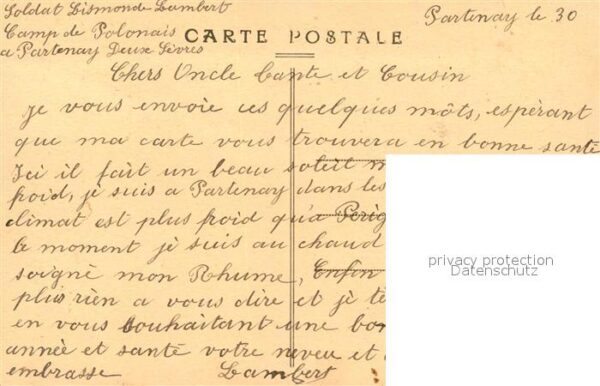 Soldat Lismonde Lambert
Camp de Polonais
a Partenay Deux Sèvres
Partenay le 30
CARTE POSTALE
Chers Oncle Cante et Cousin
Je vous envoie ces quelques môts, espèrant
que ma carte vous trouvera en bonne santé
Ici il fait un beau soleil
froid, je suis a Partenay dans les
climat est plus froid qu'a Perig
le moment je suis au chaud
soigné mon Rhume, Enfin
plus rien a vous dire et je te
en vous souhaitant une bon
année et santé votre neveu et
embrasse Lambert
privacy protection
Datenschutz